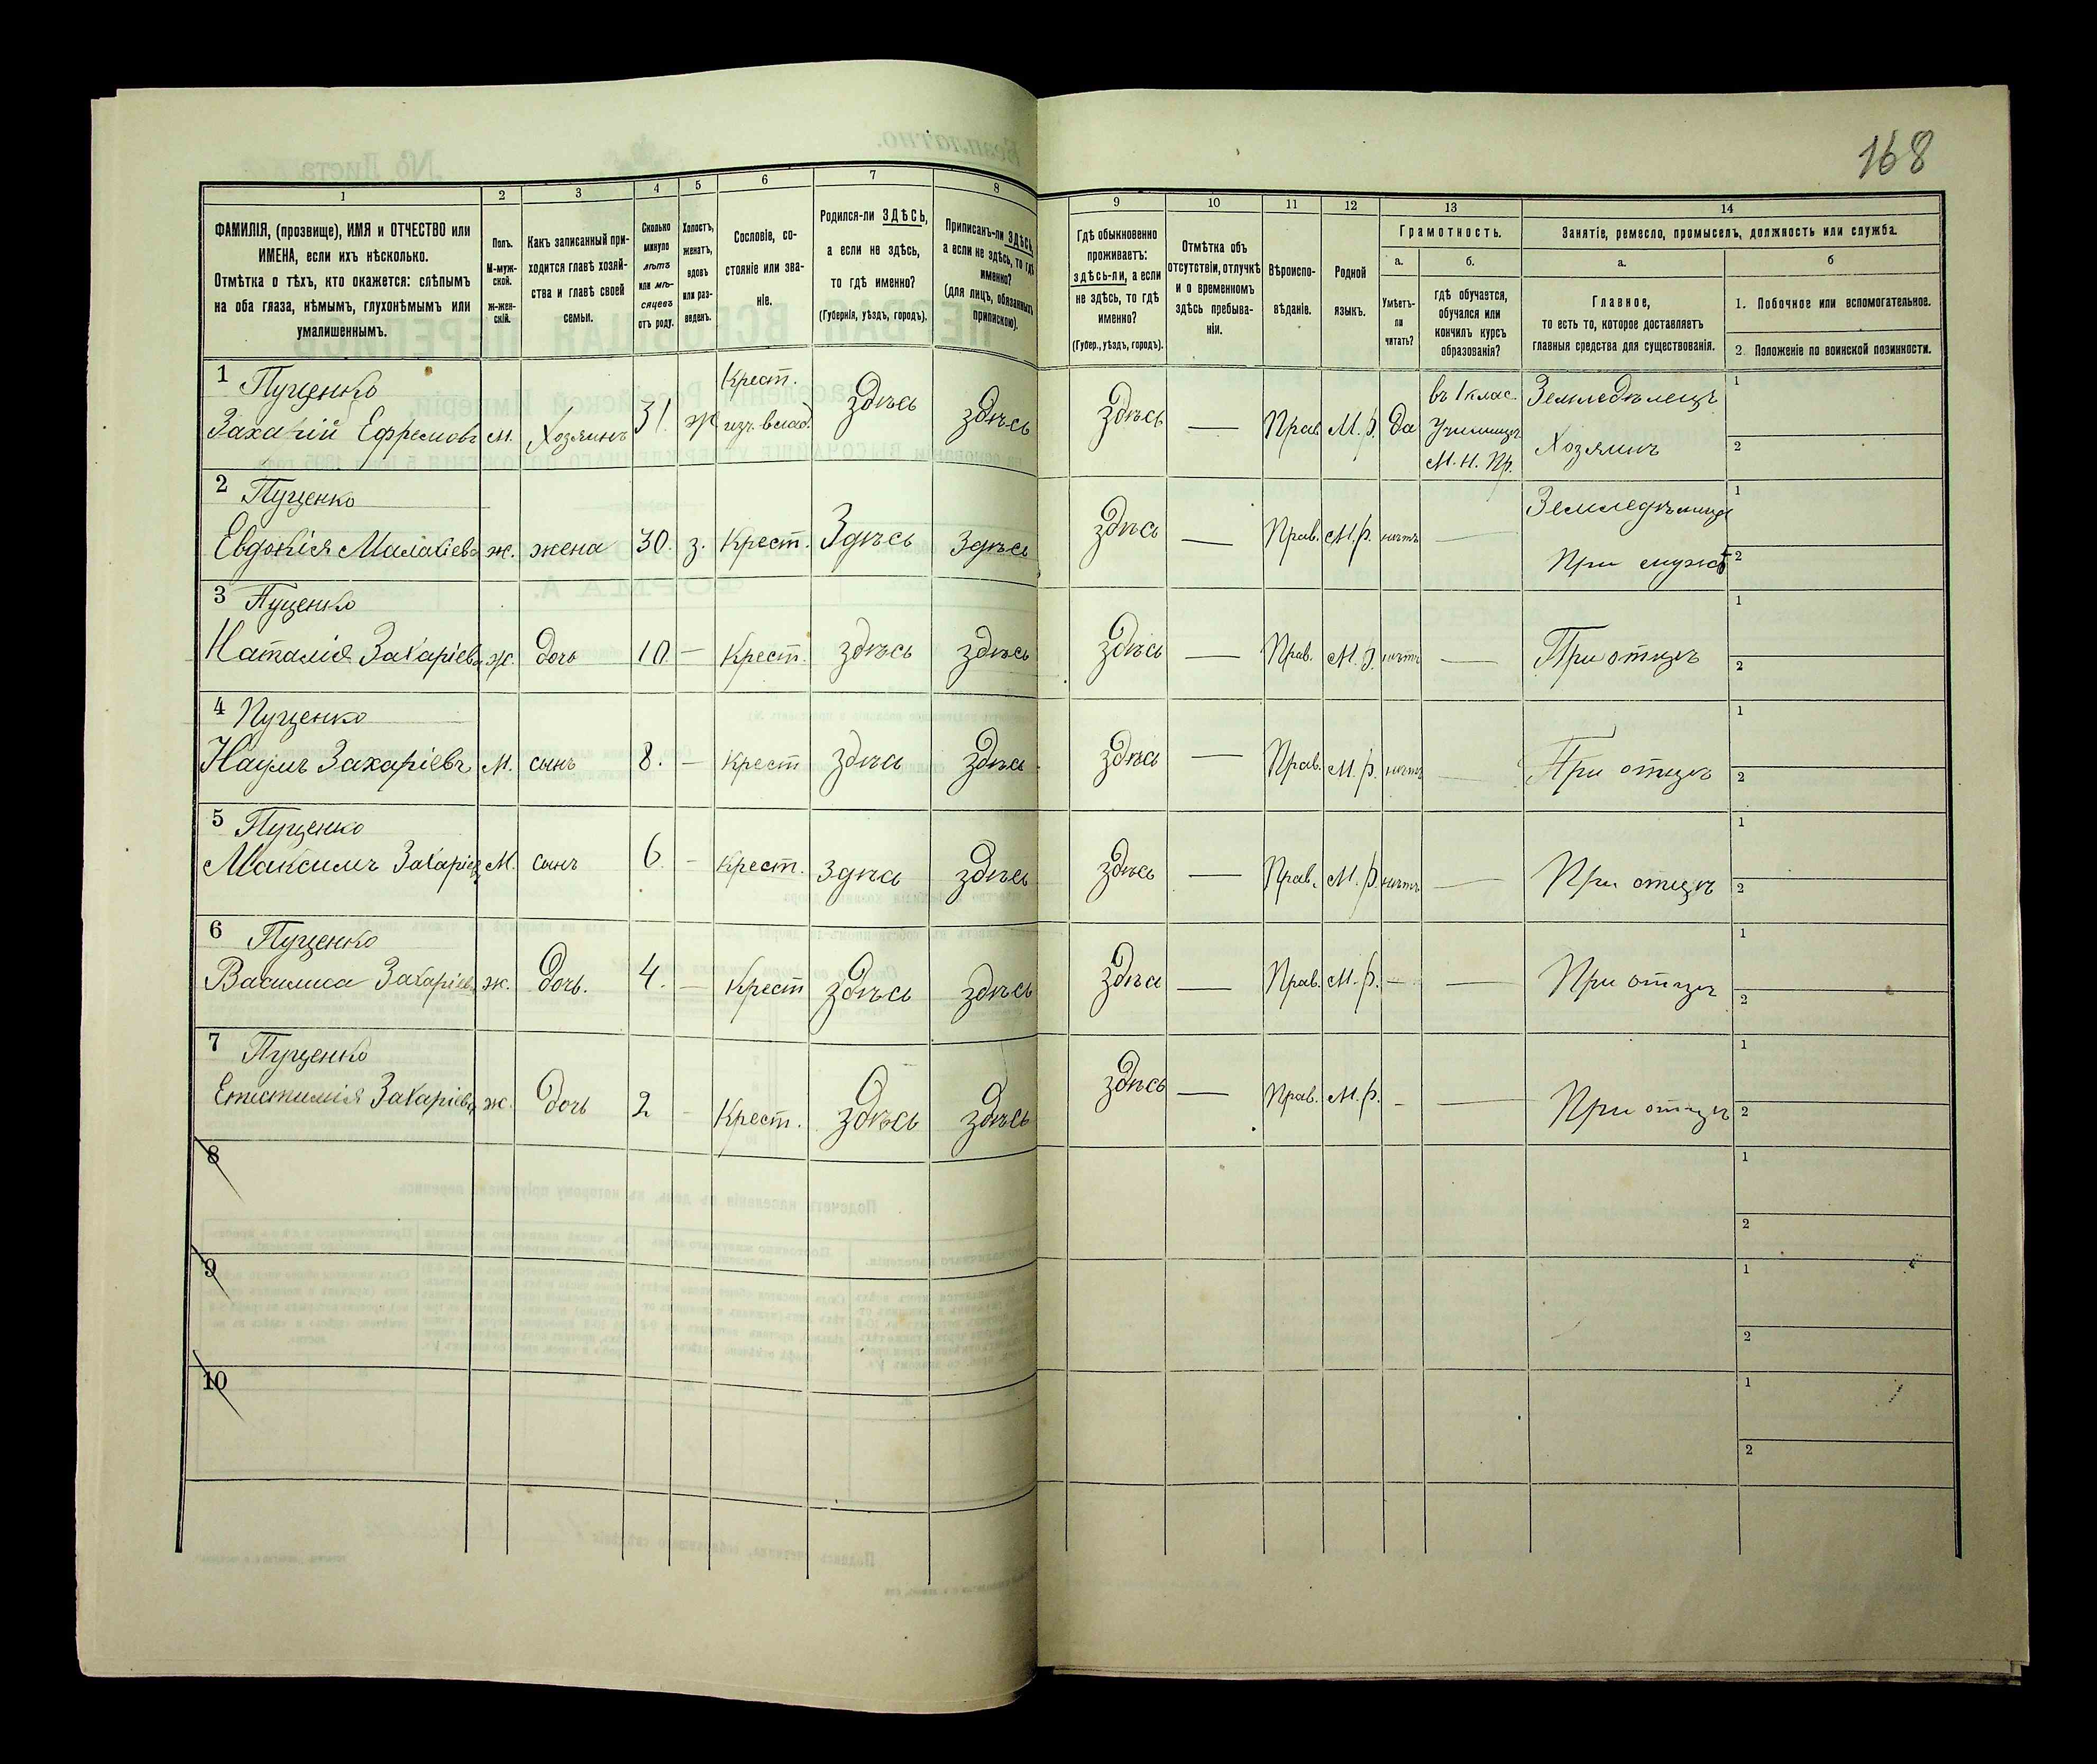 168
1
2
3
4
5
6
7
8
9
10
11
12
13
14
ФАМИЛІЯ, (прозвище), ИМЯ и ОТЧЕСТВО или
ИМЕНА, если ихъ нѣсколько.
Отмѣтка о тѣхъ, кто окажется: слѣпымъ
на оба глаза, нѣмымъ, глухонѣмымъ или
умалишеннымъ.
Полъ.
М-муж-
ской.
ж-жен-
скій.
Какъ записанный при-
ходится главѣ хозяй-
ства и главѣ своей
семьи.
Сколько
минуло
лѣтъ
или мѣ-
сяцевъ
отъ роду.
Холостъ,
женатъ,
вдовъ
или раз-
веденъ.
Сословіе, со-
стояніе или зва-
ніе.
Родился-ли ЗДѢСЬ,
а если не здѣсь,
то гдѣ именно?
(Губернія, уѣздъ, городъ).
Приписанъ-ли ЗДѢСЬ,
а если не здѣсь, то гдѣ
именно?
(для лицъ, обязанныхъ
припискою).
Гдѣ обыкновенно
проживаетъ:
здѣсь-ли, а если
не здѣсь, то гдѣ
именно?
(Губер., уѣздъ, городъ).
Отмѣтка объ
отсутствіи, отлучкѣ
и о временномъ
здѣсь пребыва-
ніи.
Вѣроиспо-
вѣданіе.
Родной
языкъ.
Грамотность.
а.
Умѣетъ-
ли
читать?
б.
гдѣ обучается,
обучался или
кончилъ курсъ
образованія?
Занятіе, ремесло, промыселъ, должность или служба.
а.
Главное,
то есть то, которое доставляетъ
главныя средства для существованія.
б
1. Побочное или вспомогательное.
2. Положеніе по воинской повинности.
1 Пуценко
Захарій Ефремовъ м. Хозяинъ 31. ж Крест. изъ влад. здѣсь здѣсь здѣсь — Прав М.р. да въ 1 клас. Училищѣ М.Н.Пр. Земледѣлецъ Хозяинъ 1 2
2 Пуценко
Евдокія Малахіева ж. жена 30. з. Крест. Здѣсь Здѣсь здѣсь — Прав. М.р. нѣтъ — При мужѣ 1 2
3 Пуценко
Наталія Захаріева ж. дочь 10 — Крест. здѣсь здѣсь здѣсь — Прав. М.р. нѣтъ — При отцѣ 1 2
4 Пуценко
Наумъ Захаріевъ М. сынъ 8. — Крест здѣсь здѣсь здѣсь — Прав. М.р. нѣтъ — При отцѣ 1 2
5 Пуценко
Максимъ М. сынъ 6 — Крест. здѣсь здѣсь здѣсь — Прав. М.р. нѣтъ — При отцѣ 1 2
6 Пуценко
Василиса ж. дочь. 4. — Крест здѣсь здѣсь здѣсь — Прав. М.р. — — При отцѣ 1 2
7 Пуценко
Захаріева ж. дочь 2 — Крест. здѣсь здѣсь здѣсь — Прав. М.р. — — При отцѣ 1 2
8 1 2
9 1 2
10 1 2